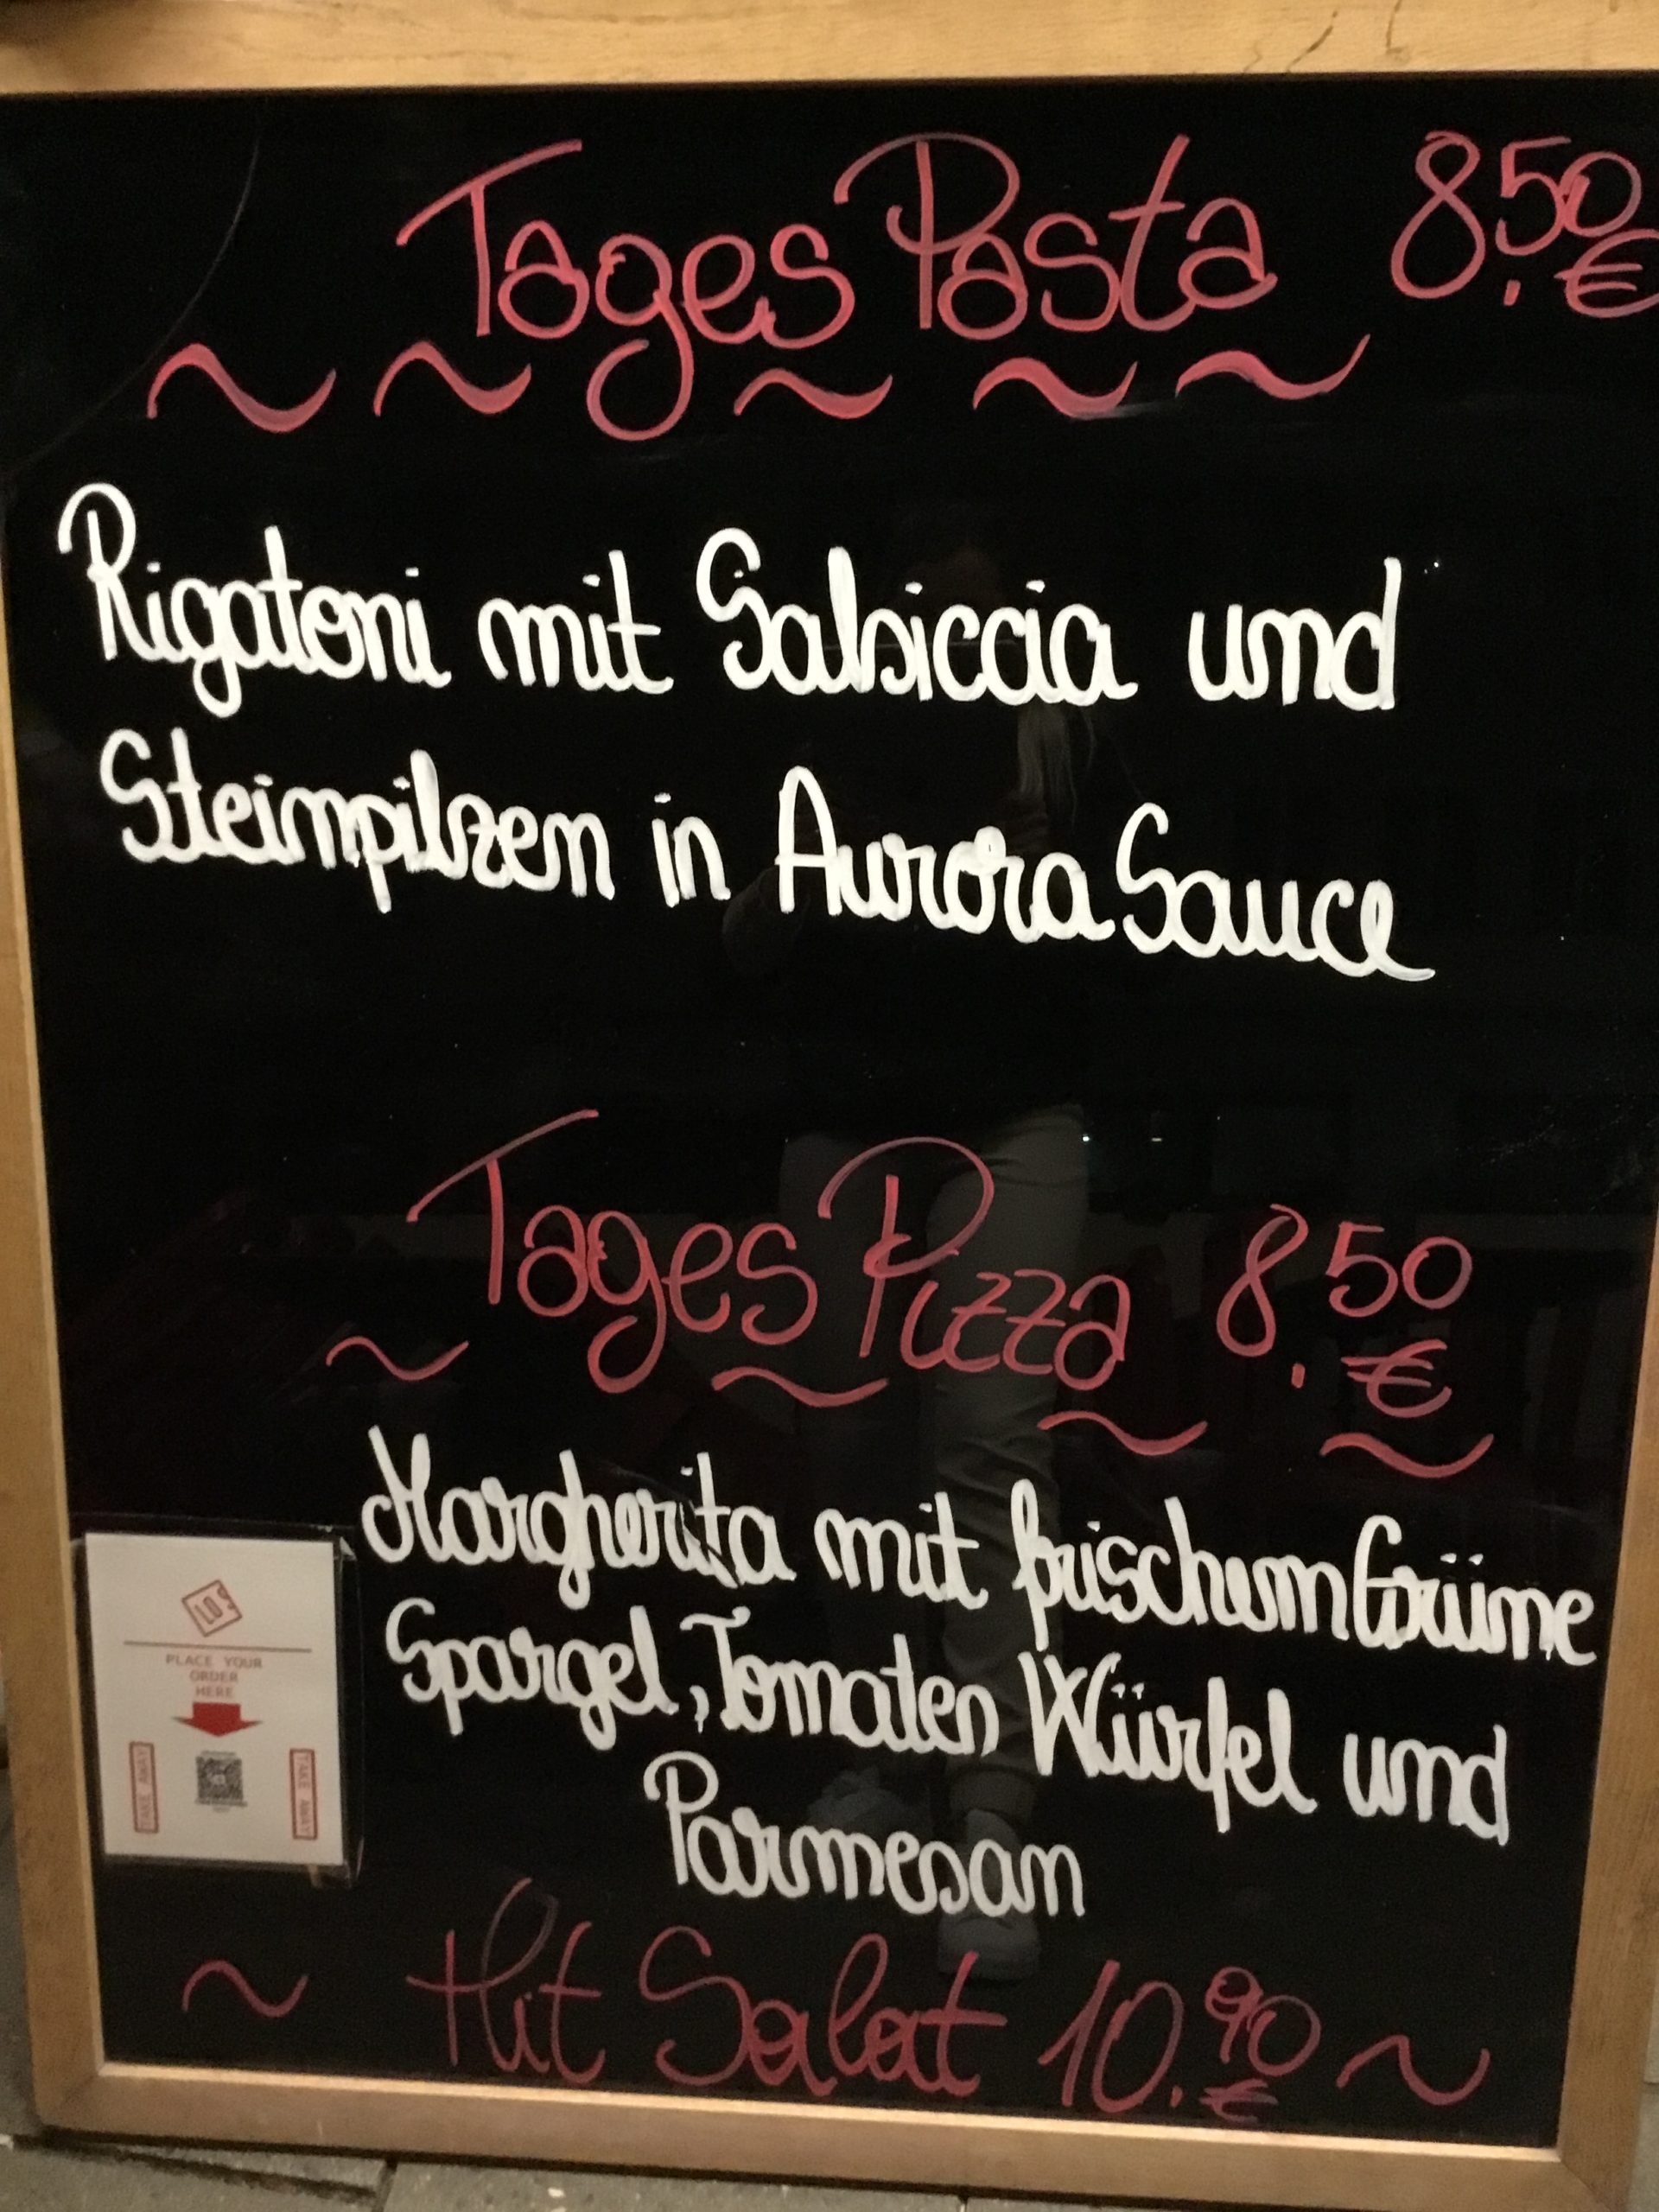 Tages Pasta 8.50 €
Rigatoni mit Salsiccia und
Steinpilzen in Aurora Sauce
Tages Pizza 8.50 €
Margherita mit frischem Grüne
Spargel, Tomaten Würfel und
Parmesan
PLACE YOUR
ORDER
HERE
TAKE AWAY
TAKE AWAY
Hit Salat 10.90 €